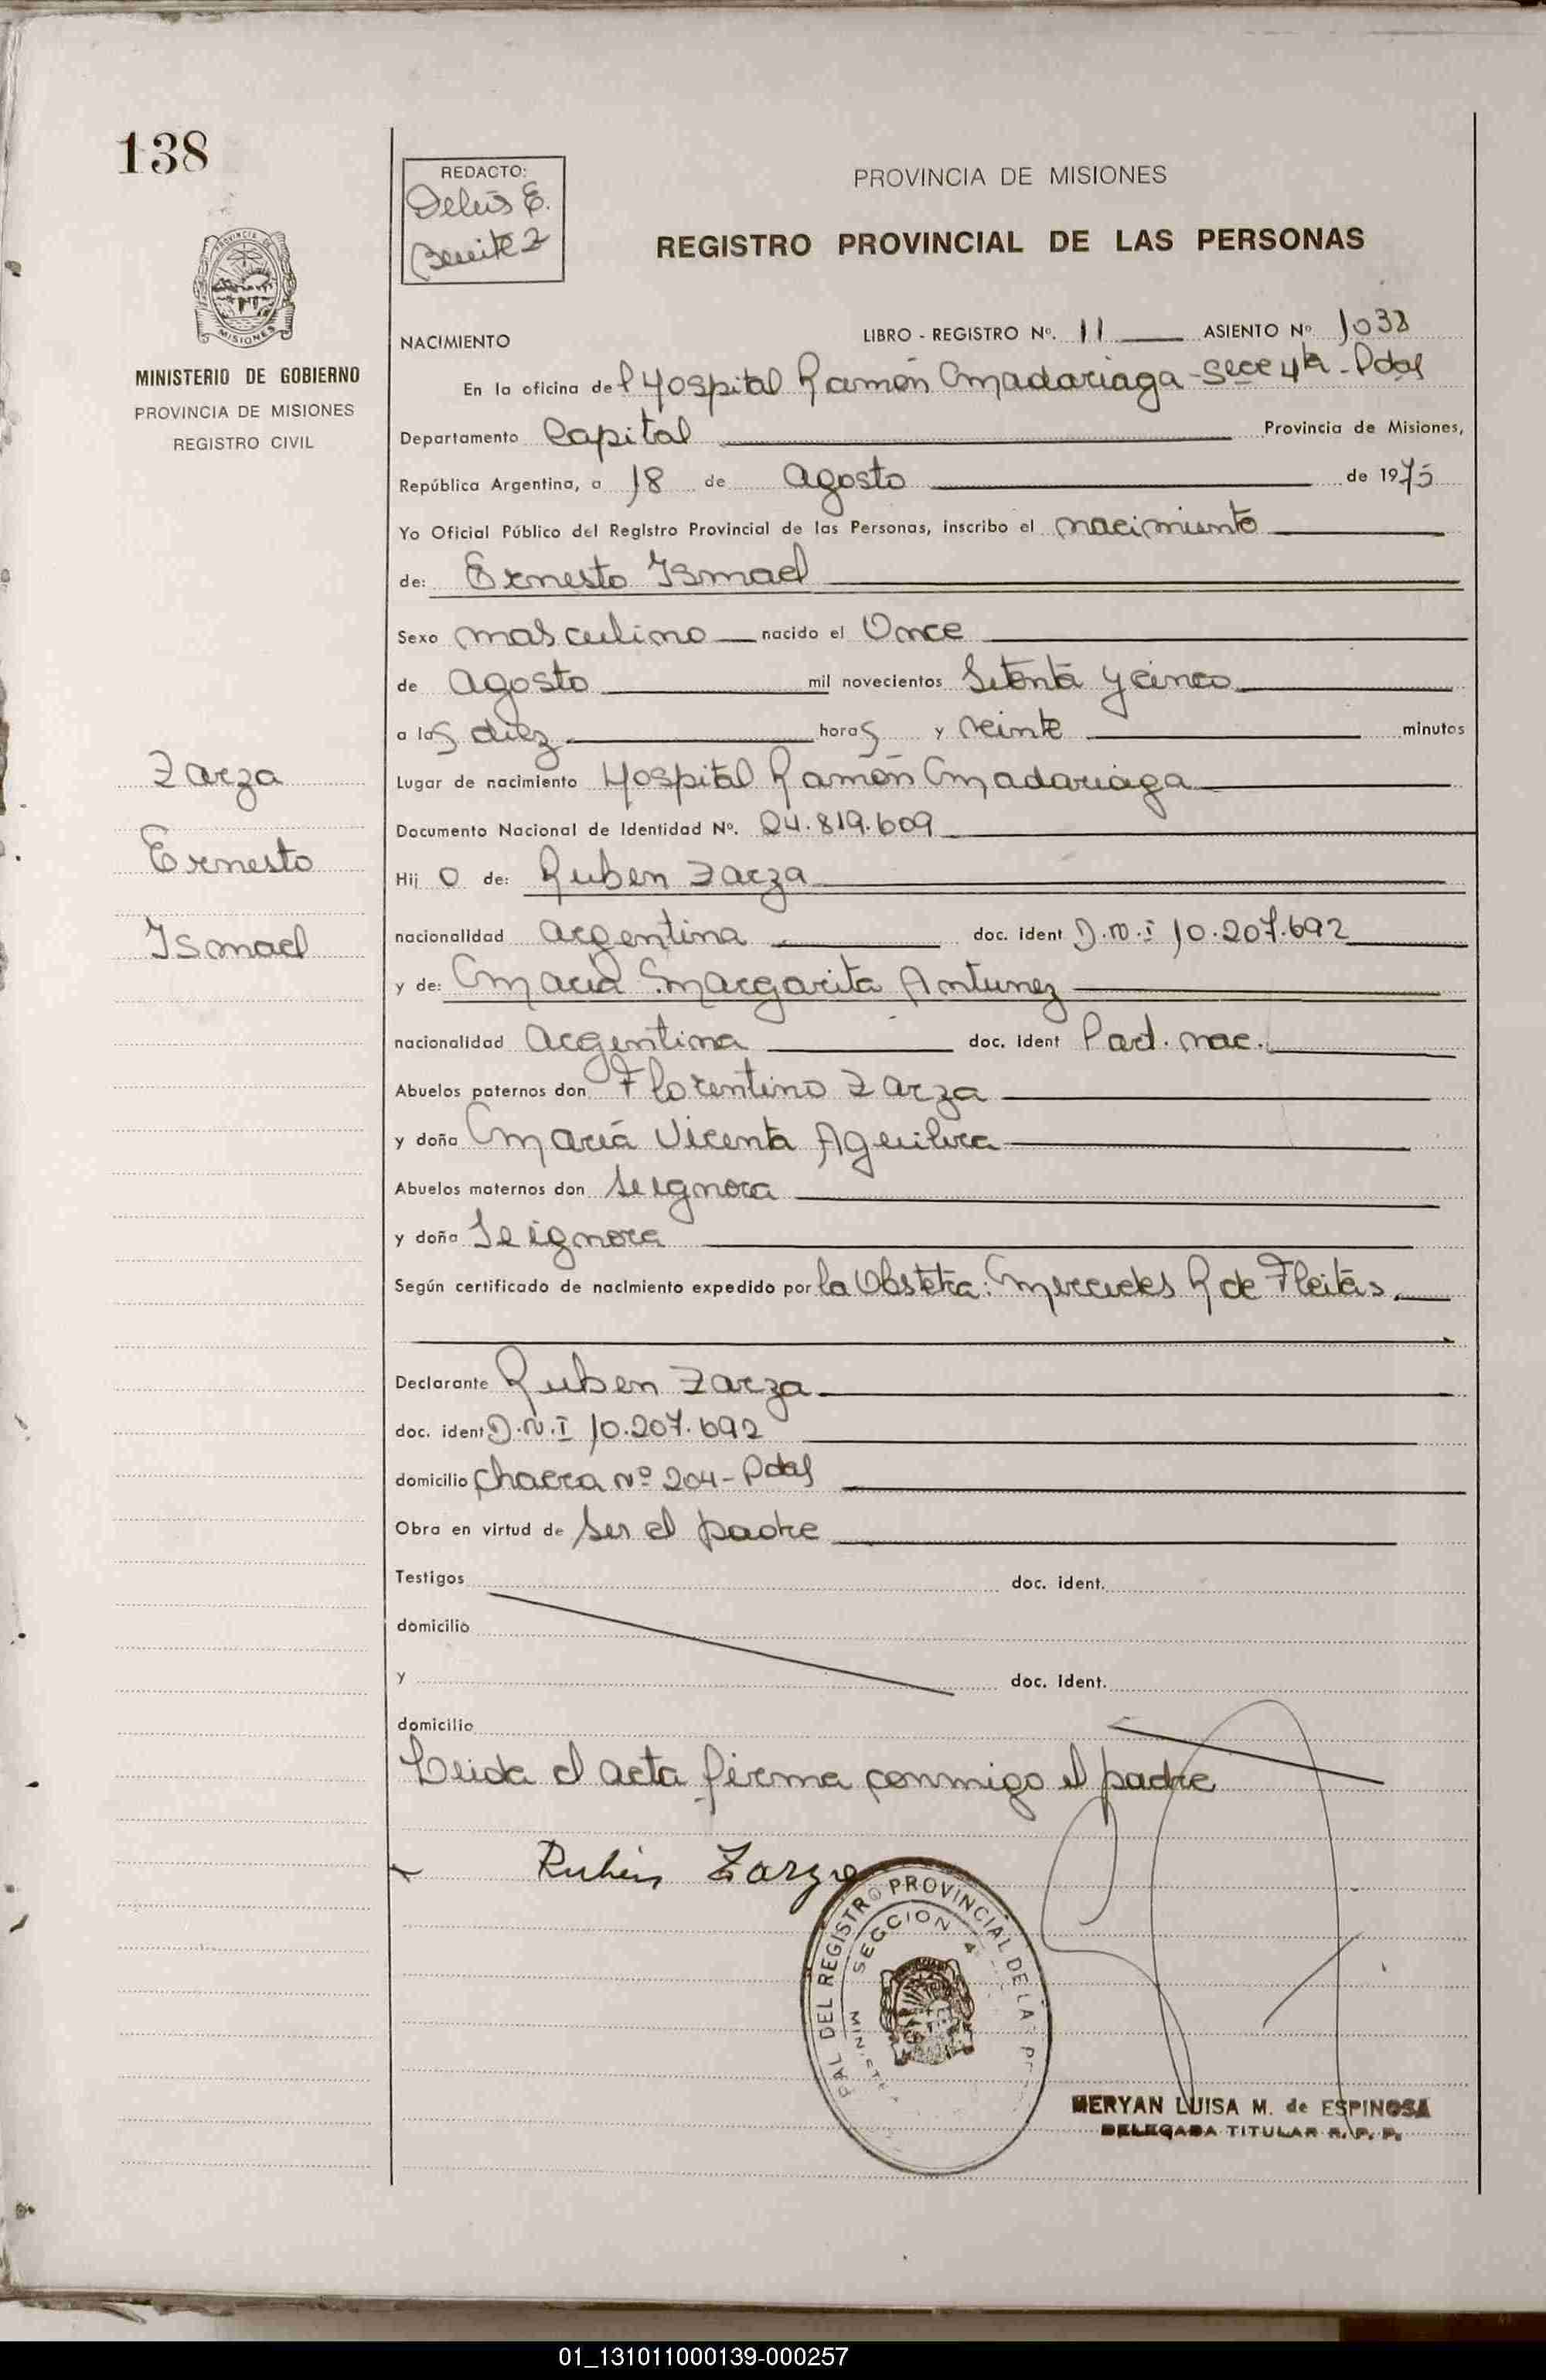 138
REDACTO:
Delús E.
Benitez
PROVINCIA DE MISIONES
REGISTRO PROVINCIAL DE LAS PERSONAS
MISIONES
MINISTERIO DE GOBIERNO
PROVINCIA DE MISIONES
REGISTRO CIVIL
NACIMIENTO LIBRO - REGISTRO Nº. 11 ASIENTO Nº 1038
En la oficina del Hospital Ramón Madariaga - Secc 4ta - Pdas
Departamento Capital Provincia de Misiones,
República Argentina, a 18 de Agosto de 1975
Yo Oficial Público del Registro Provincial de las Personas, inscribo el nacimiento
de: Ernesto Ismael
Sexo masculino nacido el Once
de Agosto mil novecientos Setenta y cinco
a las diez horas y veinte minutos
Zarza
Lugar de nacimiento Hospital Ramón Madariaga
Documento Nacional de Identidad Nº. 24.819.609
Ernesto
Hijo de: Ruben Zarza
Ismael
nacionalidad argentina doc. ident D.N.I 10.207.692
y de: Maria Margarita Antunez
nacionalidad Argentina doc. Ident Part. nac.
Abuelos paternos don Florentino Zarza
y doña María Vicenta Aguilera
Abuelos maternos don Se ignora
y doña Se ignora
Según certificado de nacimiento expedido por la Obstetra: Mercedes R de Fleitas.
Declarante Ruben Zarza
doc. ident D.N.I 10.207.692
domicilio Chacra Nº 204 - Pdas
Obra en virtud de Ser el padre
Testigos doc. ident.
domicilio
y doc. Ident.
domicilio
Leida el acta firma conmigo el padre
Rubén Zarza
DEL REGISTRO PROVINCIAL DE LA
SECCION 4
MERYAN LUISA M. de ESPINOSA
DELEGADA TITULAR R. P. P.
01_131011000139-000257